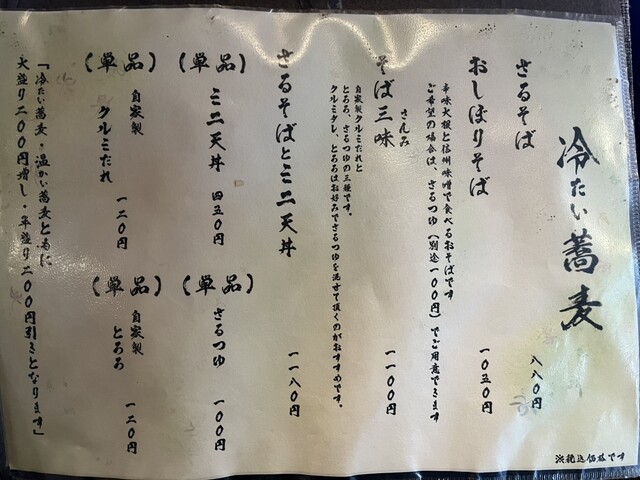 冷たい蕎麦
ざるそば 八八〇円
おしぼりそば 一〇五〇円
辛味大根と信州味噌で食べるおそばです
ご希望の場合は、ざるつゆ(別途一〇〇円)でご用意できます
そば三味 一一〇〇円
さんみ
自家製クルミだれと
とろろ、ざるつゆの三種です。
クルミダレ、とろろはお好みでざるつゆを混ぜて頂くのがおすすめです。
ざるそばとミニ天丼 一一八〇円
(単品)
ミニ天丼 四五〇円
(単品)
ざるつゆ 一〇〇円
(単品)
自家製
クルミだれ 一二〇円
(単品)
自家製
とろろ 一二〇円
「冷たい蕎麦・温かい蕎麦ともに
大盛り二〇〇円増し・半盛り二〇〇円引きとなります」
※税込価格です